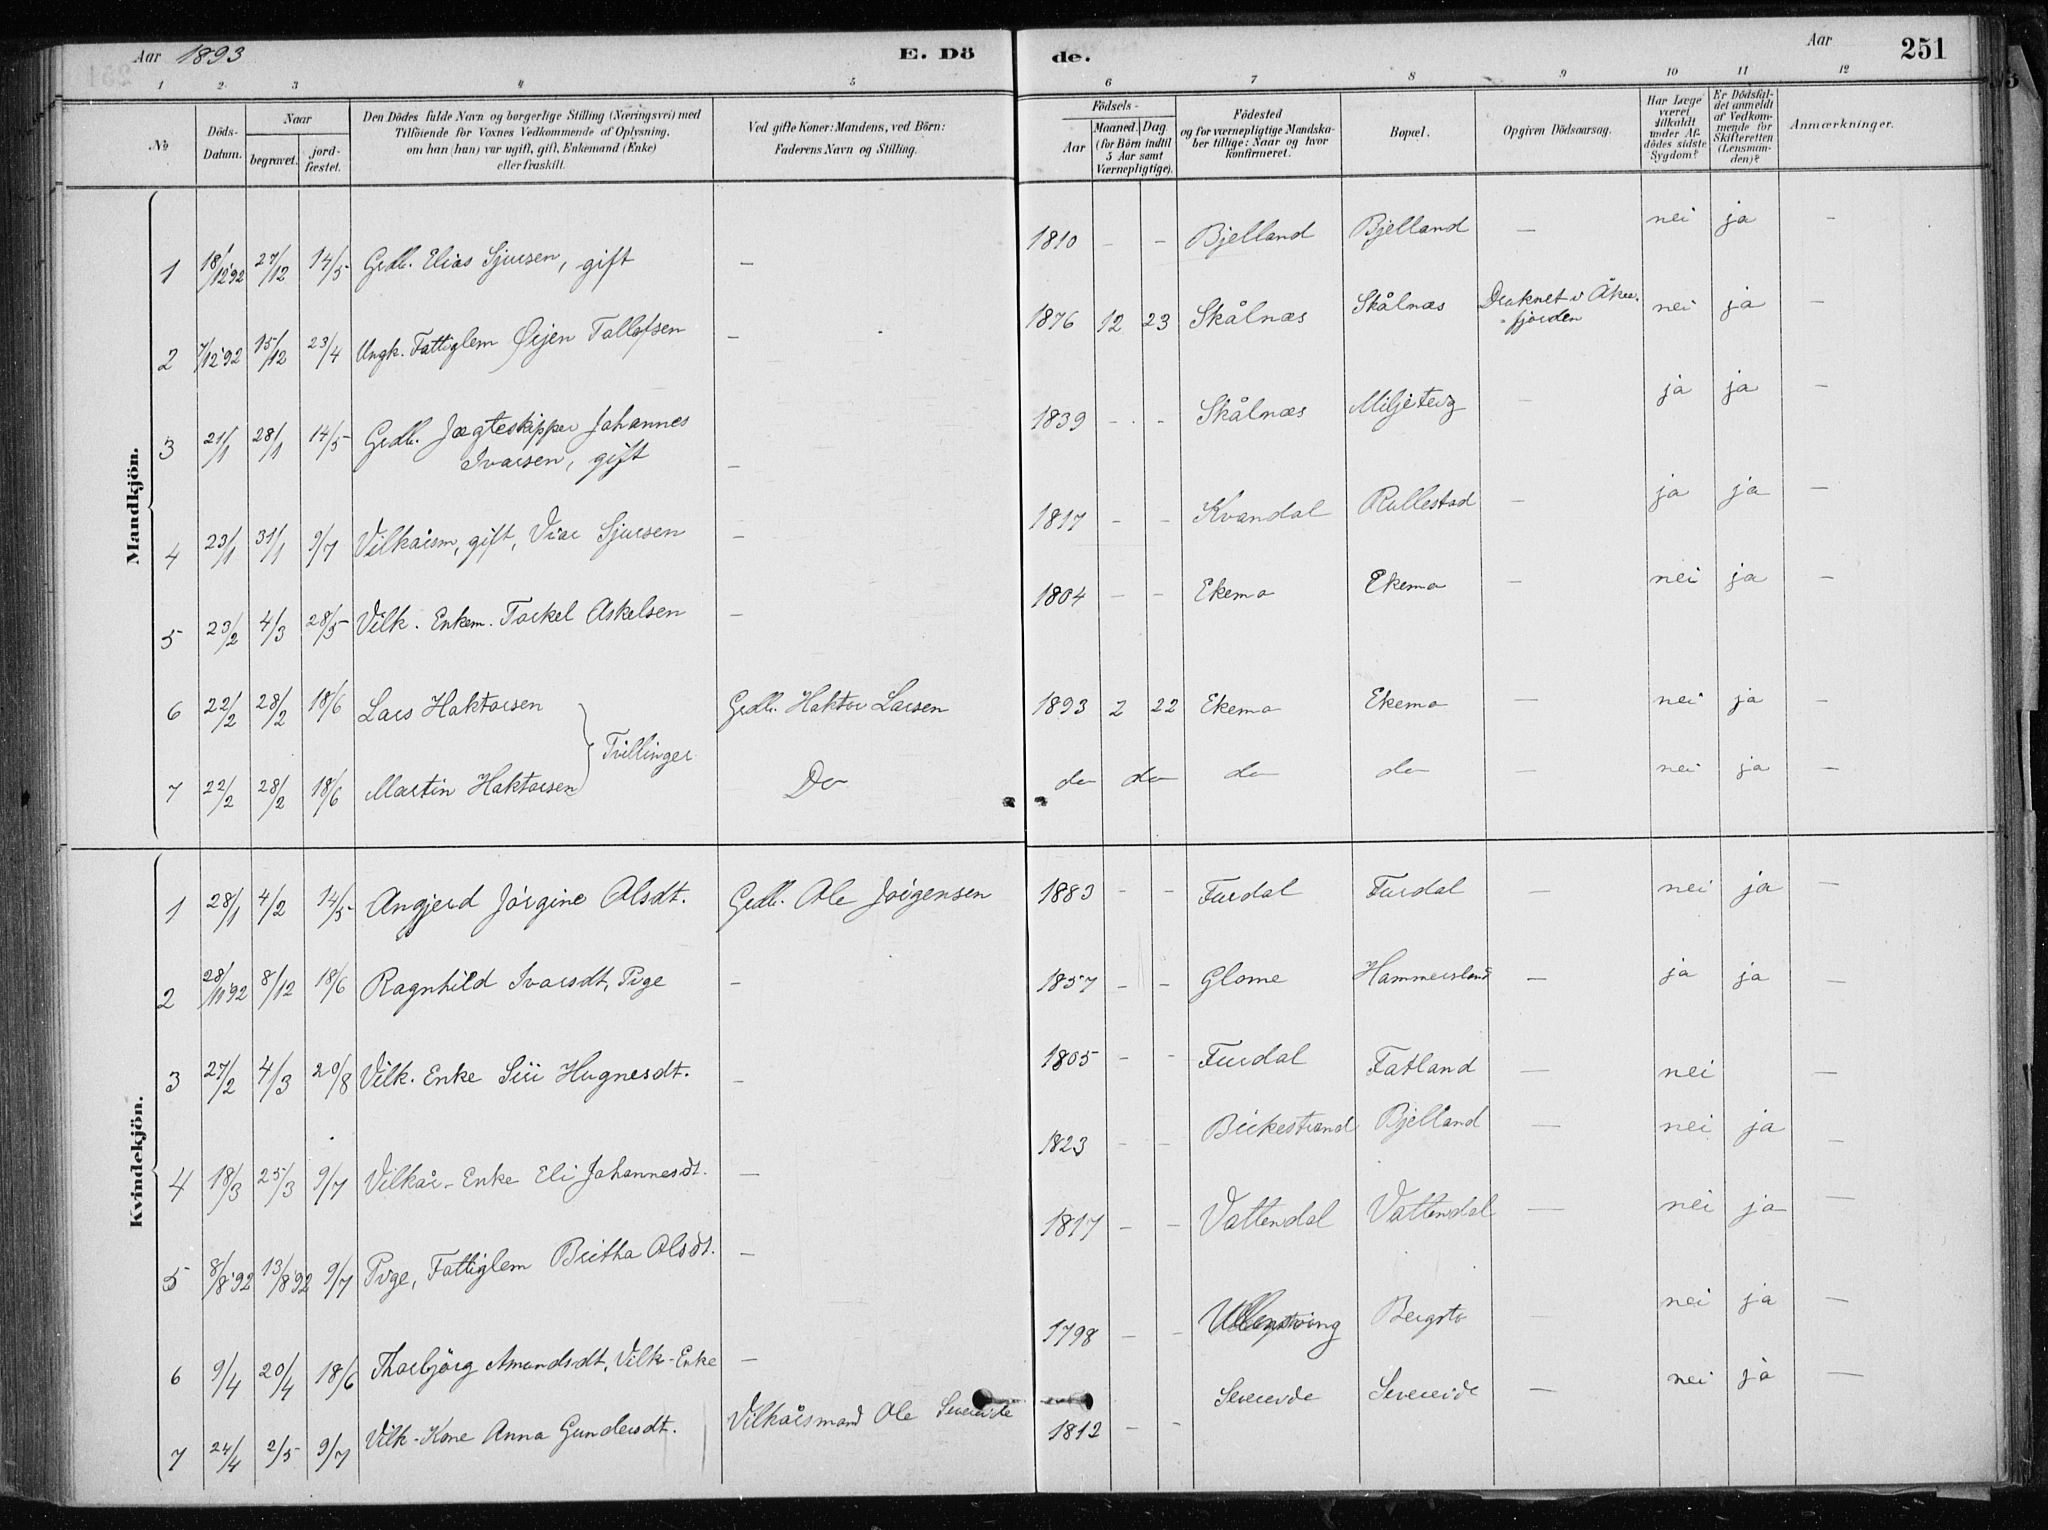 Aar 1893 E. Döde. Aar 251
1 2 3 4 5 6 7 8 9 10 11 12
No
Döds-Datum.
Naar
begravet.
jordfæstet.
Den Dödes fulde Navn og borgerlige Stilling (Næringsvei) med
Tilföiende for Voxnes Vedkommende af Oplysning,
om han (hun) var ugift, gift, Enkemand (Enke)
eller fraskilt.
Ved gifte Koner: Mandens, ved Börn:
Faderens Navn og Stilling.
Födsels-
Aar
Maaned. Dag
(for Börn indtil
5 Aar samt
Værnepligtige).
Födested
og for værnepligtige Mandskaber tillige: Naar og hvor
konfirmeret.
Bopæl.
Opgiven Dödsaarsag.
Har Læge
været
tilkaldt
under Afdödes sidste
Sygdom?
Er Dödsfaldet anmeldt
af Vedkommende for
Skifteretten
(Lensmanden)?
Anmærkninger.
Mandkjön.
1 18/12 92 27/12 14/5 Grdb. Elias Sjursen, gift — 1810 - - Bjelland Bjelland — nei ja —
2 7/12 92 15/12 23/4 Ungk. Fattiglem Öijen Tollefsen — 1876 12 23 Skålnæs Skålnæs Druknet i Åkrefjorden nei ja —
3 21/1 28/1 14/5 Grdb. Jægteskipper Johannes
Ivarsen, gift — 1839 - - Skålnæs Miljeteig — ja ja —
4 23/1 31/1 9/7 Vilkårsm, gift, Viar Sjursen — 1817 - - Kvandal Rullestad — ja ja —
5 23/2 4/3 28/5 Vilk. Enkem. Torkel Askelsen — 1804 - - Ekemo Ekemo — nei ja —
6 22/2 28/2 18/6 Lars Haktorsen Grdb. Haktor Larsen 1893 2 22 Ekemo Ekemo — nei ja —
Tvillinger
7 22/2 28/2 18/6 Martin Haktorsen Do do do do do — nei ja —
Kvindekjön.
1 28/1 4/2 14/5 Angjerd Jörgine Olsdt. Grdb. Ole Jörgensen 1883 - - Furdal Furdal — nei ja —
2 28/11 92 8/12 18/6 Ragnhild Ivarsdt, Pige — 1857 - - Glome Hammersland — ja ja —
3 27/2 4/3 20/8 Vilk. Enke Siri Hugnesdt. — 1805 - - Furdal Fatland — nei —
4 18/3 25/3 9/7 Vilkår-Enke Eli Johannesdt. — 1823 - - Birkestrand Bjelland — nei ja —
5 8/8 92 13/8 92 9/7 Pige, Fattiglem Britha Olsdt. — 1817 - - Vattendal Vattendal — nei ja —
6 9/4 20/4 18/6 Thorbjörg Amundsdt, Vilk-Enke — 1798 - - Ullensvang Bergstö — nei ja —
7 24/4 2/5 9/7 Vilk-Kone Anna Gundersdt. Vilkårsmand Ole Severeide 1812 - - Severeide Severeide — nei ja